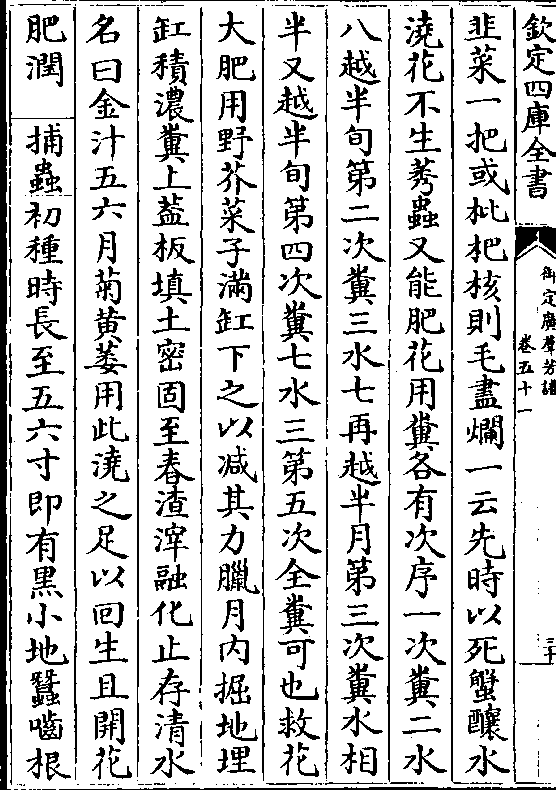 欽定四庫全書
御定廣羣芳譜
卷五十一
三十
韭菜一把或枇杷核則毛盡爛一云先時以死蟹釀水
澆花不生莠蟲又能肥花用糞各有次序一次糞二水
八越半旬第二次糞三水七再越半月第三次糞水相
半又越半旬第四次糞七水三第五次全糞可也救花
大肥用野芥菜子滿缸下之以減其力臘月内掘地埋
缸積濃糞上葢板填土密固至春渣滓融化止存清水
名曰金汁五六月菊黄萎用此澆之足以回生且開花
肥潤　捕蟲初種時長至五六寸即有黒小地蠶嚙根